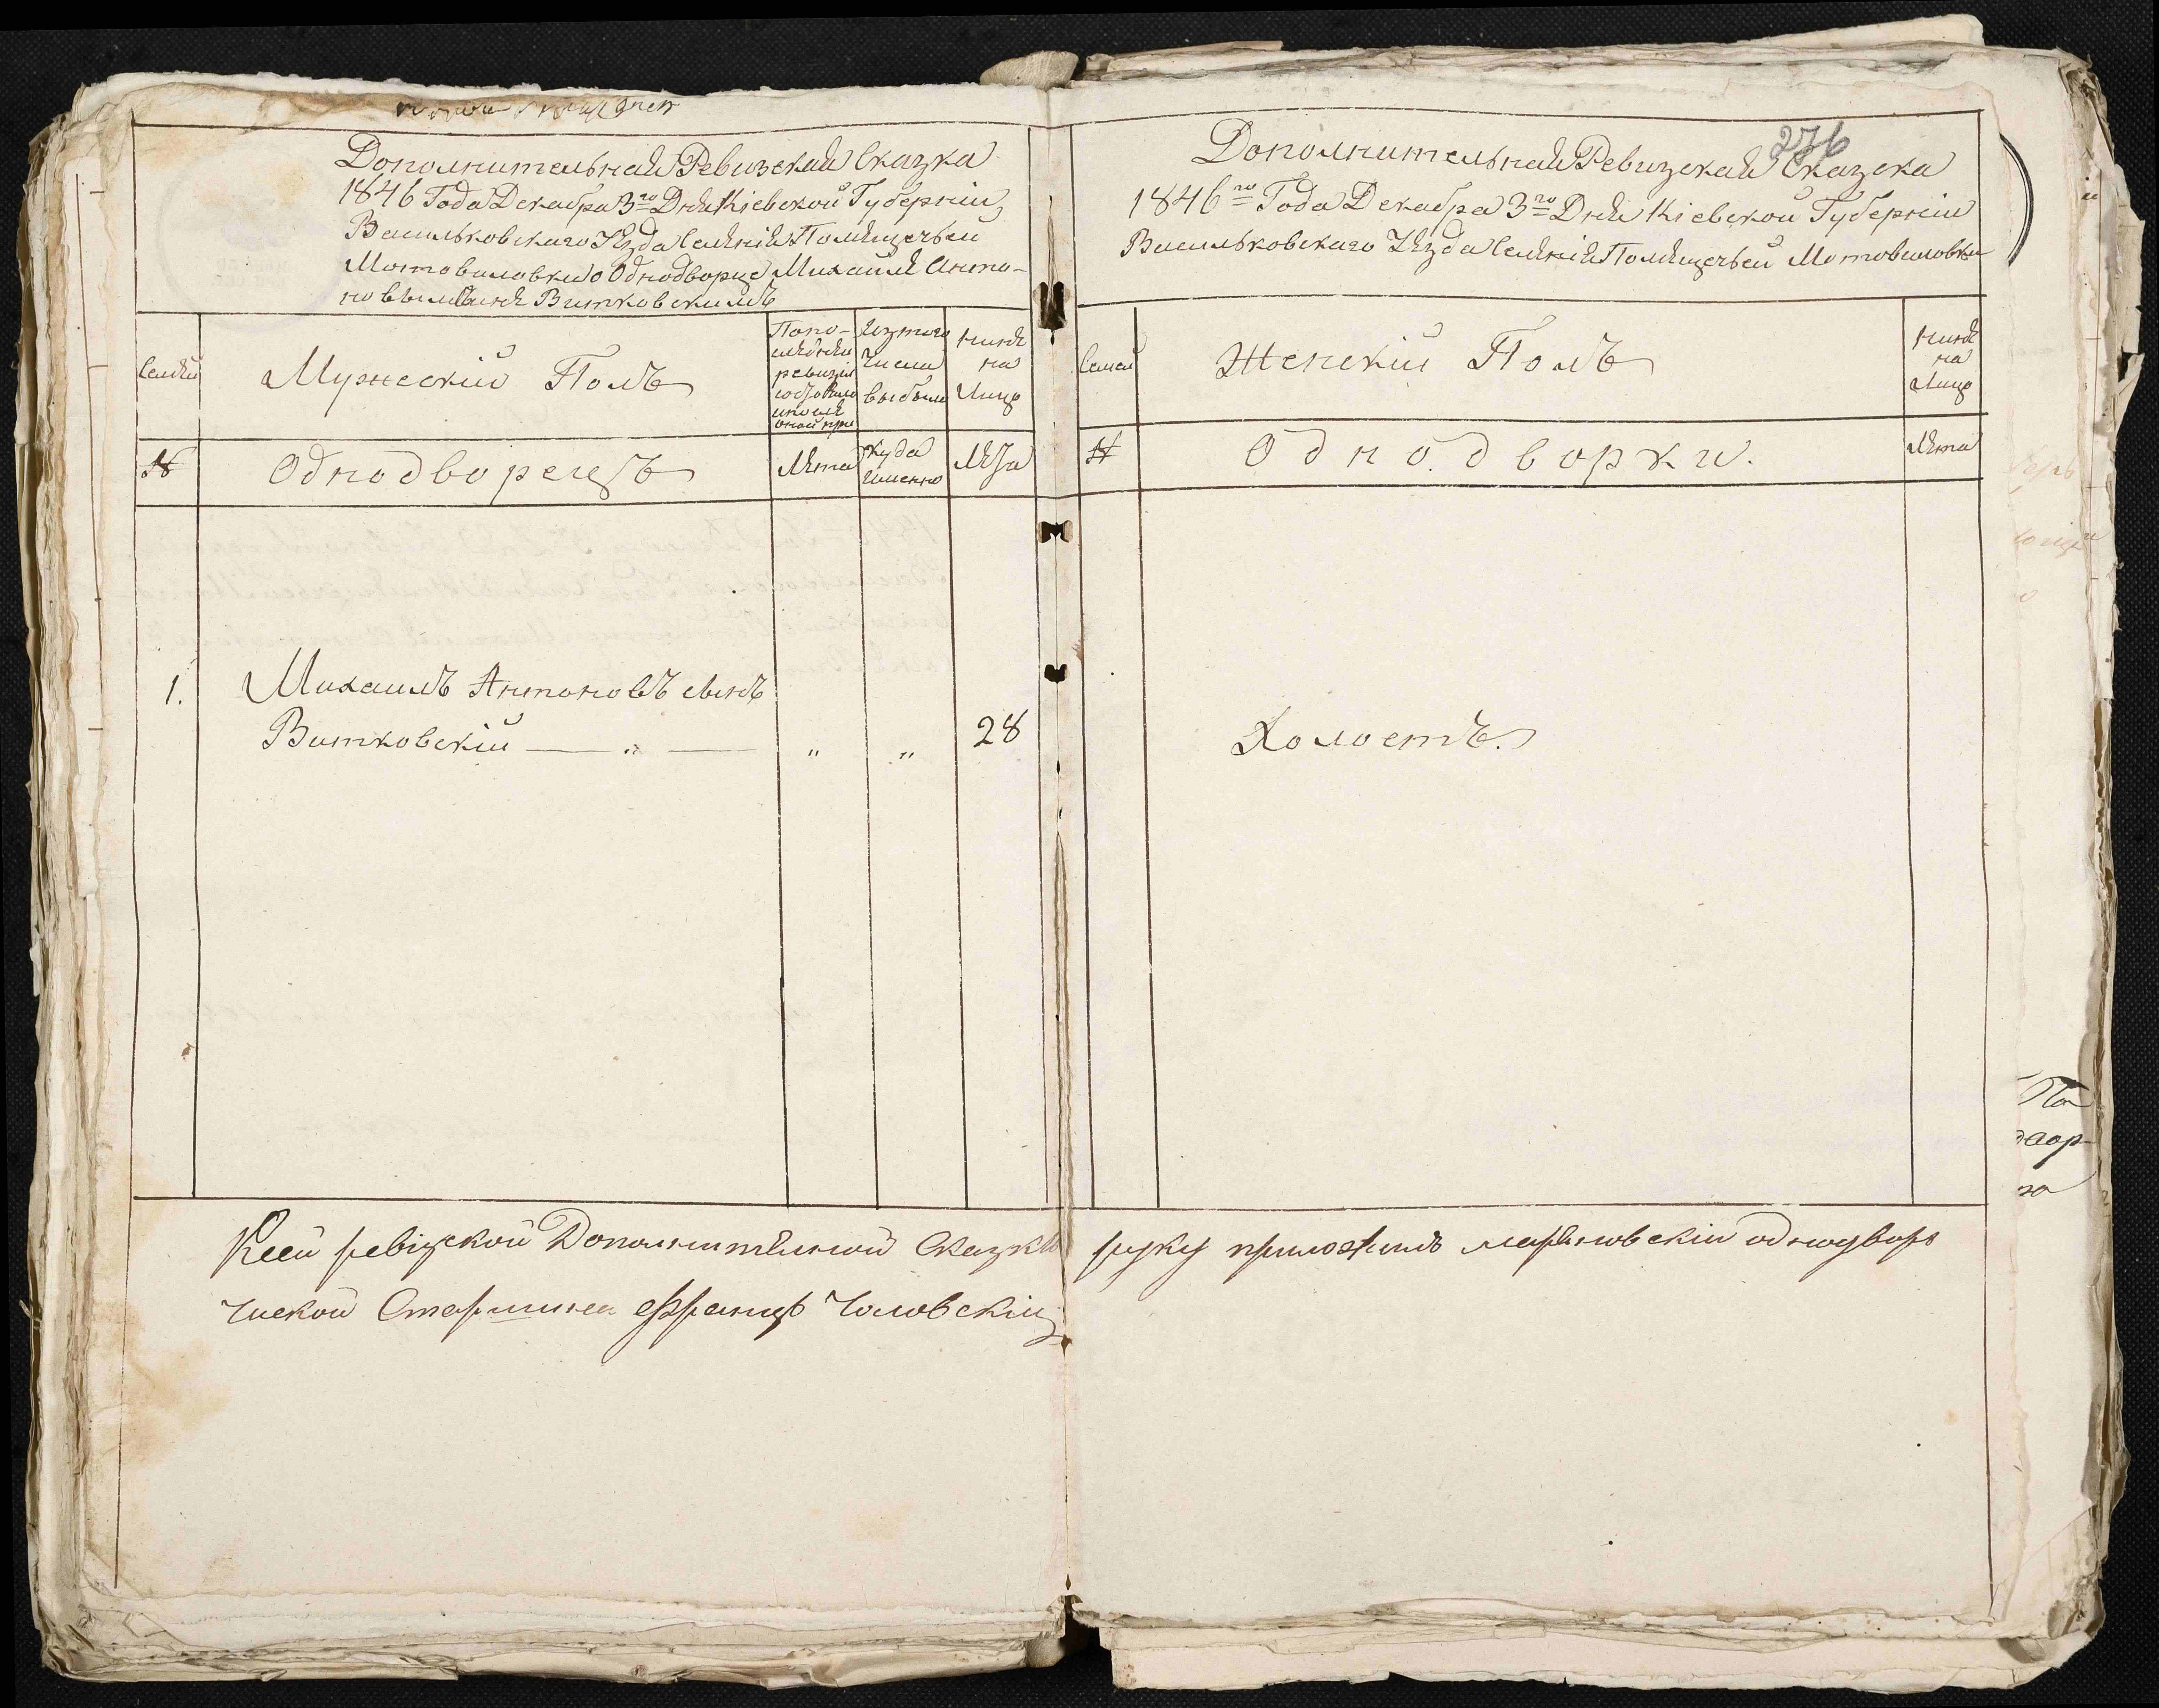 Дополнительная Ревизская Сказка
1846 Года Декабра 3го Дня Кіевской Губерніи
Васильковскаго Уѣзда Селѣнія Помѣщечьей
Мотовиловки о Однодворце Михайлѣ Анто-
новымъ Сынѣ Витковскимъ
Семѣй
Мужескій Полъ
По по-
слѣдней
ревизіи
состояло
и послѣ
оной при
Из того
Числа
выбыло
Нинѣ
на
Лицо
№
Однодворецъ
Лѣта
Куда
Именно
Лѣта
1.
Михаилъ Антоновъ сынъ
Витковскій — „ — „ „ 28
276
Дополнительная Ревизская Сказска
1846го Года Декабра 3го Дня Кіевской Губерніи
Васильковскаго Уѣзда Селѣнія Помѣщечьей Мотовиловки
Семей
Женскій Полъ
Нинѣ
на
Лицо
№
Однодворки.
Лѣта
Холостъ.
Ксей ревізской Дополнитѣлной Сказки руку приложилъ однодвор
Ческой Старшина Францъ
По